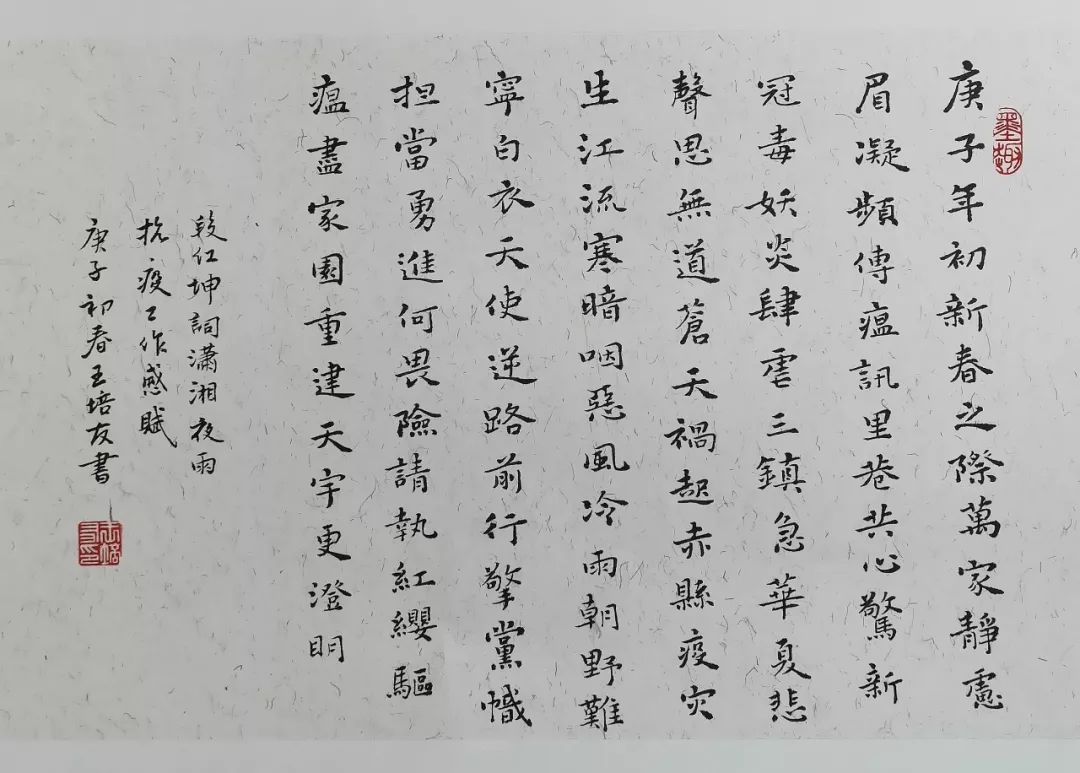 庚子年初新春之際萬家靜慮
眉凝頻傳瘟訊里巷共心驚新
冠毒妖炎肆虐三鎮急華夏悲
聲思無道蒼天禍起赤縣疫灾
生江流寒暗咽惡風冷雨朝野難
寧白衣天使逆路前行擎黨幟
担當勇進何畏險請執紅纓驅
瘟盡家園重建天宇更澄明
段仁坤詞瀟湘夜雨
抗疫工作感賦
庚子初春王培友書